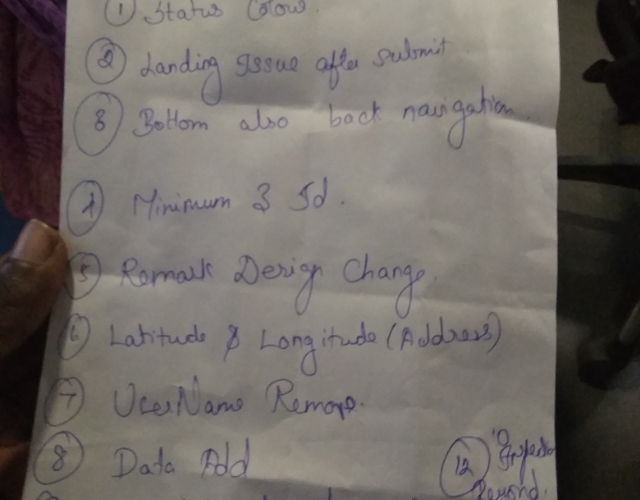 ① Status Colour.
② Landing Issue after submit
③ Bottom also back navigation.
④ Minimum 3 Id.
⑤ Remark Design Change.
⑥ Latitude & Longitude (Address)
⑦ UserName Remove.
⑧ Data Add
⑫